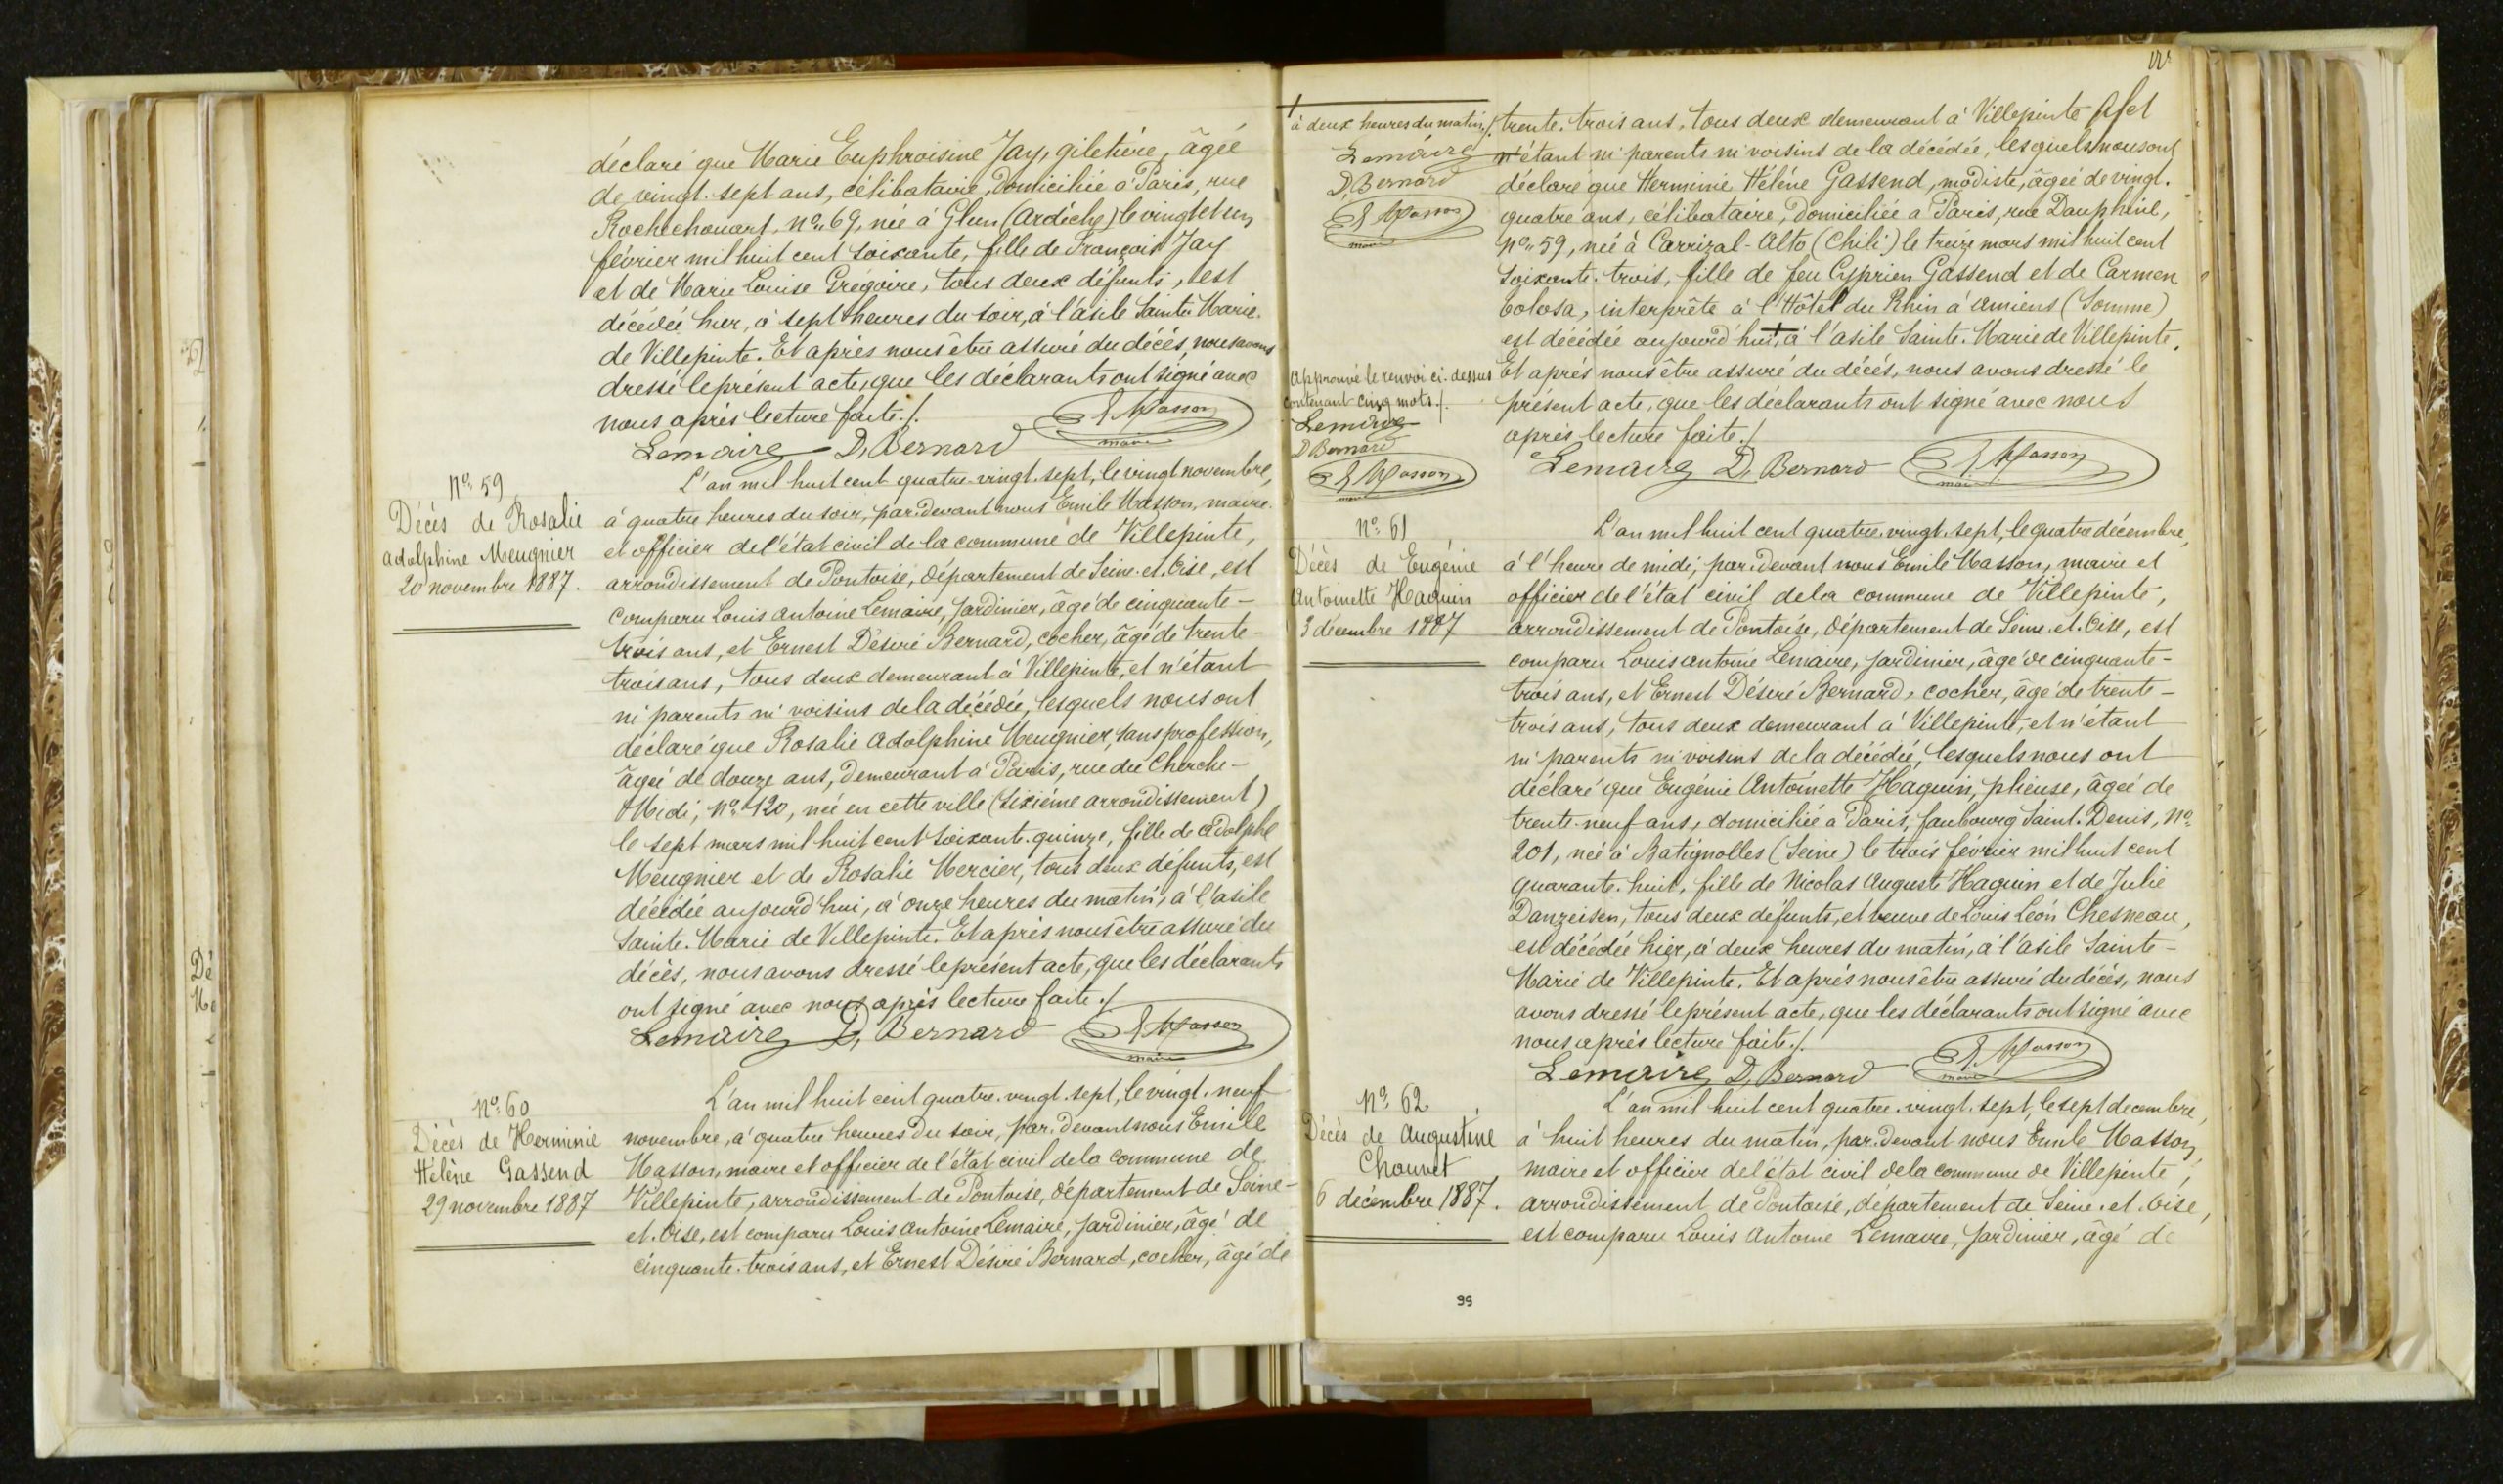 déclaré que Marie Euphroisine Jay, giletière, âgée
de vingt-sept ans, célibataire, domiciliée à Paris, rue
Rochechouart, No. 69, née à Glun (Ardèche) le vingt et un
février mil huit cent soixante, fille de François Jay
et de Marie Louise Grégoire, tous deux défunts, est
décédée hier, à sept heures du soir, à l'asile Sainte Marie
de Villepinte. Et après nous être assuré du décès, nous avons
dressé le présent acte, que les déclarants ont signé avec
nous après lecture faite ./.
Lemaire D. Bernard E. Masson
maire
No. 59
Décès de Rosalie
Adolphine Meugnier
20 novembre 1887.
L'an mil huit cent quatre-vingt-sept, le vingt novembre,
à quatre heures du soir, par-devant nous Emile Masson, maire
et officier de l'état civil de la commune de Villepinte,
arrondissement de Pontoise, département de Seine-et-Oise, est
comparu Louis Antoine Lemaire, jardinier, âgé de cinquante-
trois ans, et Ernest Désiré Bernard, cocher, âgé de trente-
trois ans, tous deux demeurant à Villepinte, et n'étant
ni parents ni voisins de la décédée, lesquels nous ont
déclaré que Rosalie Adolphine Meugnier, sans profession,
âgée de douze ans, demeurant à Paris, rue du Cherche-
Midi, No. 120, née en cette ville (sixième arrondissement)
le sept mars mil huit cent soixante-quinze, fille de Adolphe
Meugnier et de Rosalie Mercier, tous deux défunts, est
décédée aujourd'hui, à onze heures du matin, à l'asile
Sainte-Marie de Villepinte. Et après nous être assuré du
décès, nous avons dressé le présent acte, que les déclarants
ont signé avec nous après lecture faite ./.
Lemaire D. Bernard E. Masson
maire
No. 60
Décès de Herminie
Hélène Gassend
29 novembre 1887
L'an mil huit cent quatre-vingt-sept, le vingt-neuf
novembre, à quatre heures du soir, par-devant nous Emile
Masson, maire et officier de l'état civil de la commune de
Villepinte, arrondissement de Pontoise, département de Seine-
et-Oise, est comparu Louis Antoine Lemaire, jardinier, âgé de
cinquante-trois ans, et Ernest Désiré Bernard, cocher, âgé de
à deux heures du matin ./.
Lemaire
D. Bernard
E. Masson
maire
Approuvé le renvoi ci-dessus
contenant cinq mots ./.
Lemaire
D. Bernard
E. Masson
maire
trente-trois ans, tous deux demeurant à Villepinte et
n'étant ni parents ni voisins de la décédée, lesquels nous ont
déclaré que Herminie Hélène Gassend, modiste, âgée de vingt-
quatre ans, célibataire, domiciliée à Paris, rue Dauphine,
No. 59, née à Carrizal-Alto (Chili) le treize mars mil huit cent
soixante-trois, fille de feu Cyprien Gassend et de Carmen
Colosa, interprête à l'Hôtel du Rhin à Amiens (Somme)
est décédée aujourd'hui, à l'asile Sainte-Marie de Villepinte.
Et après nous être assuré du décès, nous avons dressé le
présent acte, que les déclarants ont signé avec nous
après lecture faite ./.
Lemaire D. Bernard E. Masson
maire
No. 61
Décès de Eugénie
Antoinette Haquin
3 décembre 1887
L'an mil huit cent quatre-vingt-sept, le quatre décembre,
à l'heure de midi, par-devant nous Emile Masson, maire et
officier de l'état civil de la commune de Villepinte,
arrondissement de Pontoise, département de Seine-et-Oise, est
comparu Louis Antoine Lemaire, jardinier, âgé de cinquante-
trois ans, et Ernest Désiré Bernard, cocher, âgé de trente-
trois ans, tous deux demeurant à Villepinte, et n'étant
ni parents ni voisins de la décédée, lesquels nous ont
déclaré que Eugénie Antoinette Haquin, plieuse, âgée de
trente-neuf ans, domiciliée à Paris, faubourg Saint-Denis, No.
201, née à Batignolles (Seine) le trois février mil huit cent
quarante-huit, fille de Nicolas Auguste Haquin et de Julie
Danzeisen, tous deux défunts, et veuve de Louis Léon Chesneau,
est décédée hier, à deux heures du matin, à l'asile Sainte-
Marie de Villepinte. Et après nous être assuré du décès, nous
avons dressé le présent acte, que les déclarants ont signé avec
nous après lecture faite ./.
Lemaire D. Bernard E. Masson
maire
No. 62
Décès de Augustine
Chouvet
6 décembre 1887.
L'an mil huit cent quatre-vingt-sept, le sept décembre,
à huit heures du matin, par-devant nous Emile Masson,
maire et officier de l'état civil de la commune de Villepinte,
arrondissement de Pontoise, département de Seine-et-Oise,
est comparu Louis Antoine Lemaire, jardinier, âgé de
99